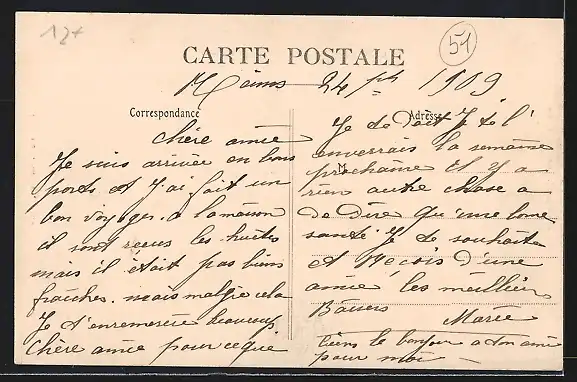 12+
51
CARTE POSTALE
Reims 24 sept 1909
Correspondance
chère amie
Je suis arrivée en bons
ports et J'ai fait un
bon voyages. a la maison
il sont reçus les huitres
mais il était pas biens
fraîches. mais malgre cela
Je t'en remercie beaucoup
chère amie pour ce que
Adresse
Je te doit Je te l'
enverrais la semaine
M
prochaine Il y a
rien autre chose a
te dire qu'une bonne
santé Je te souhaite
et Reçois d'une
amie les meilleurs
Baisers
Marie
biens le bonjour a ton ami
pour moi